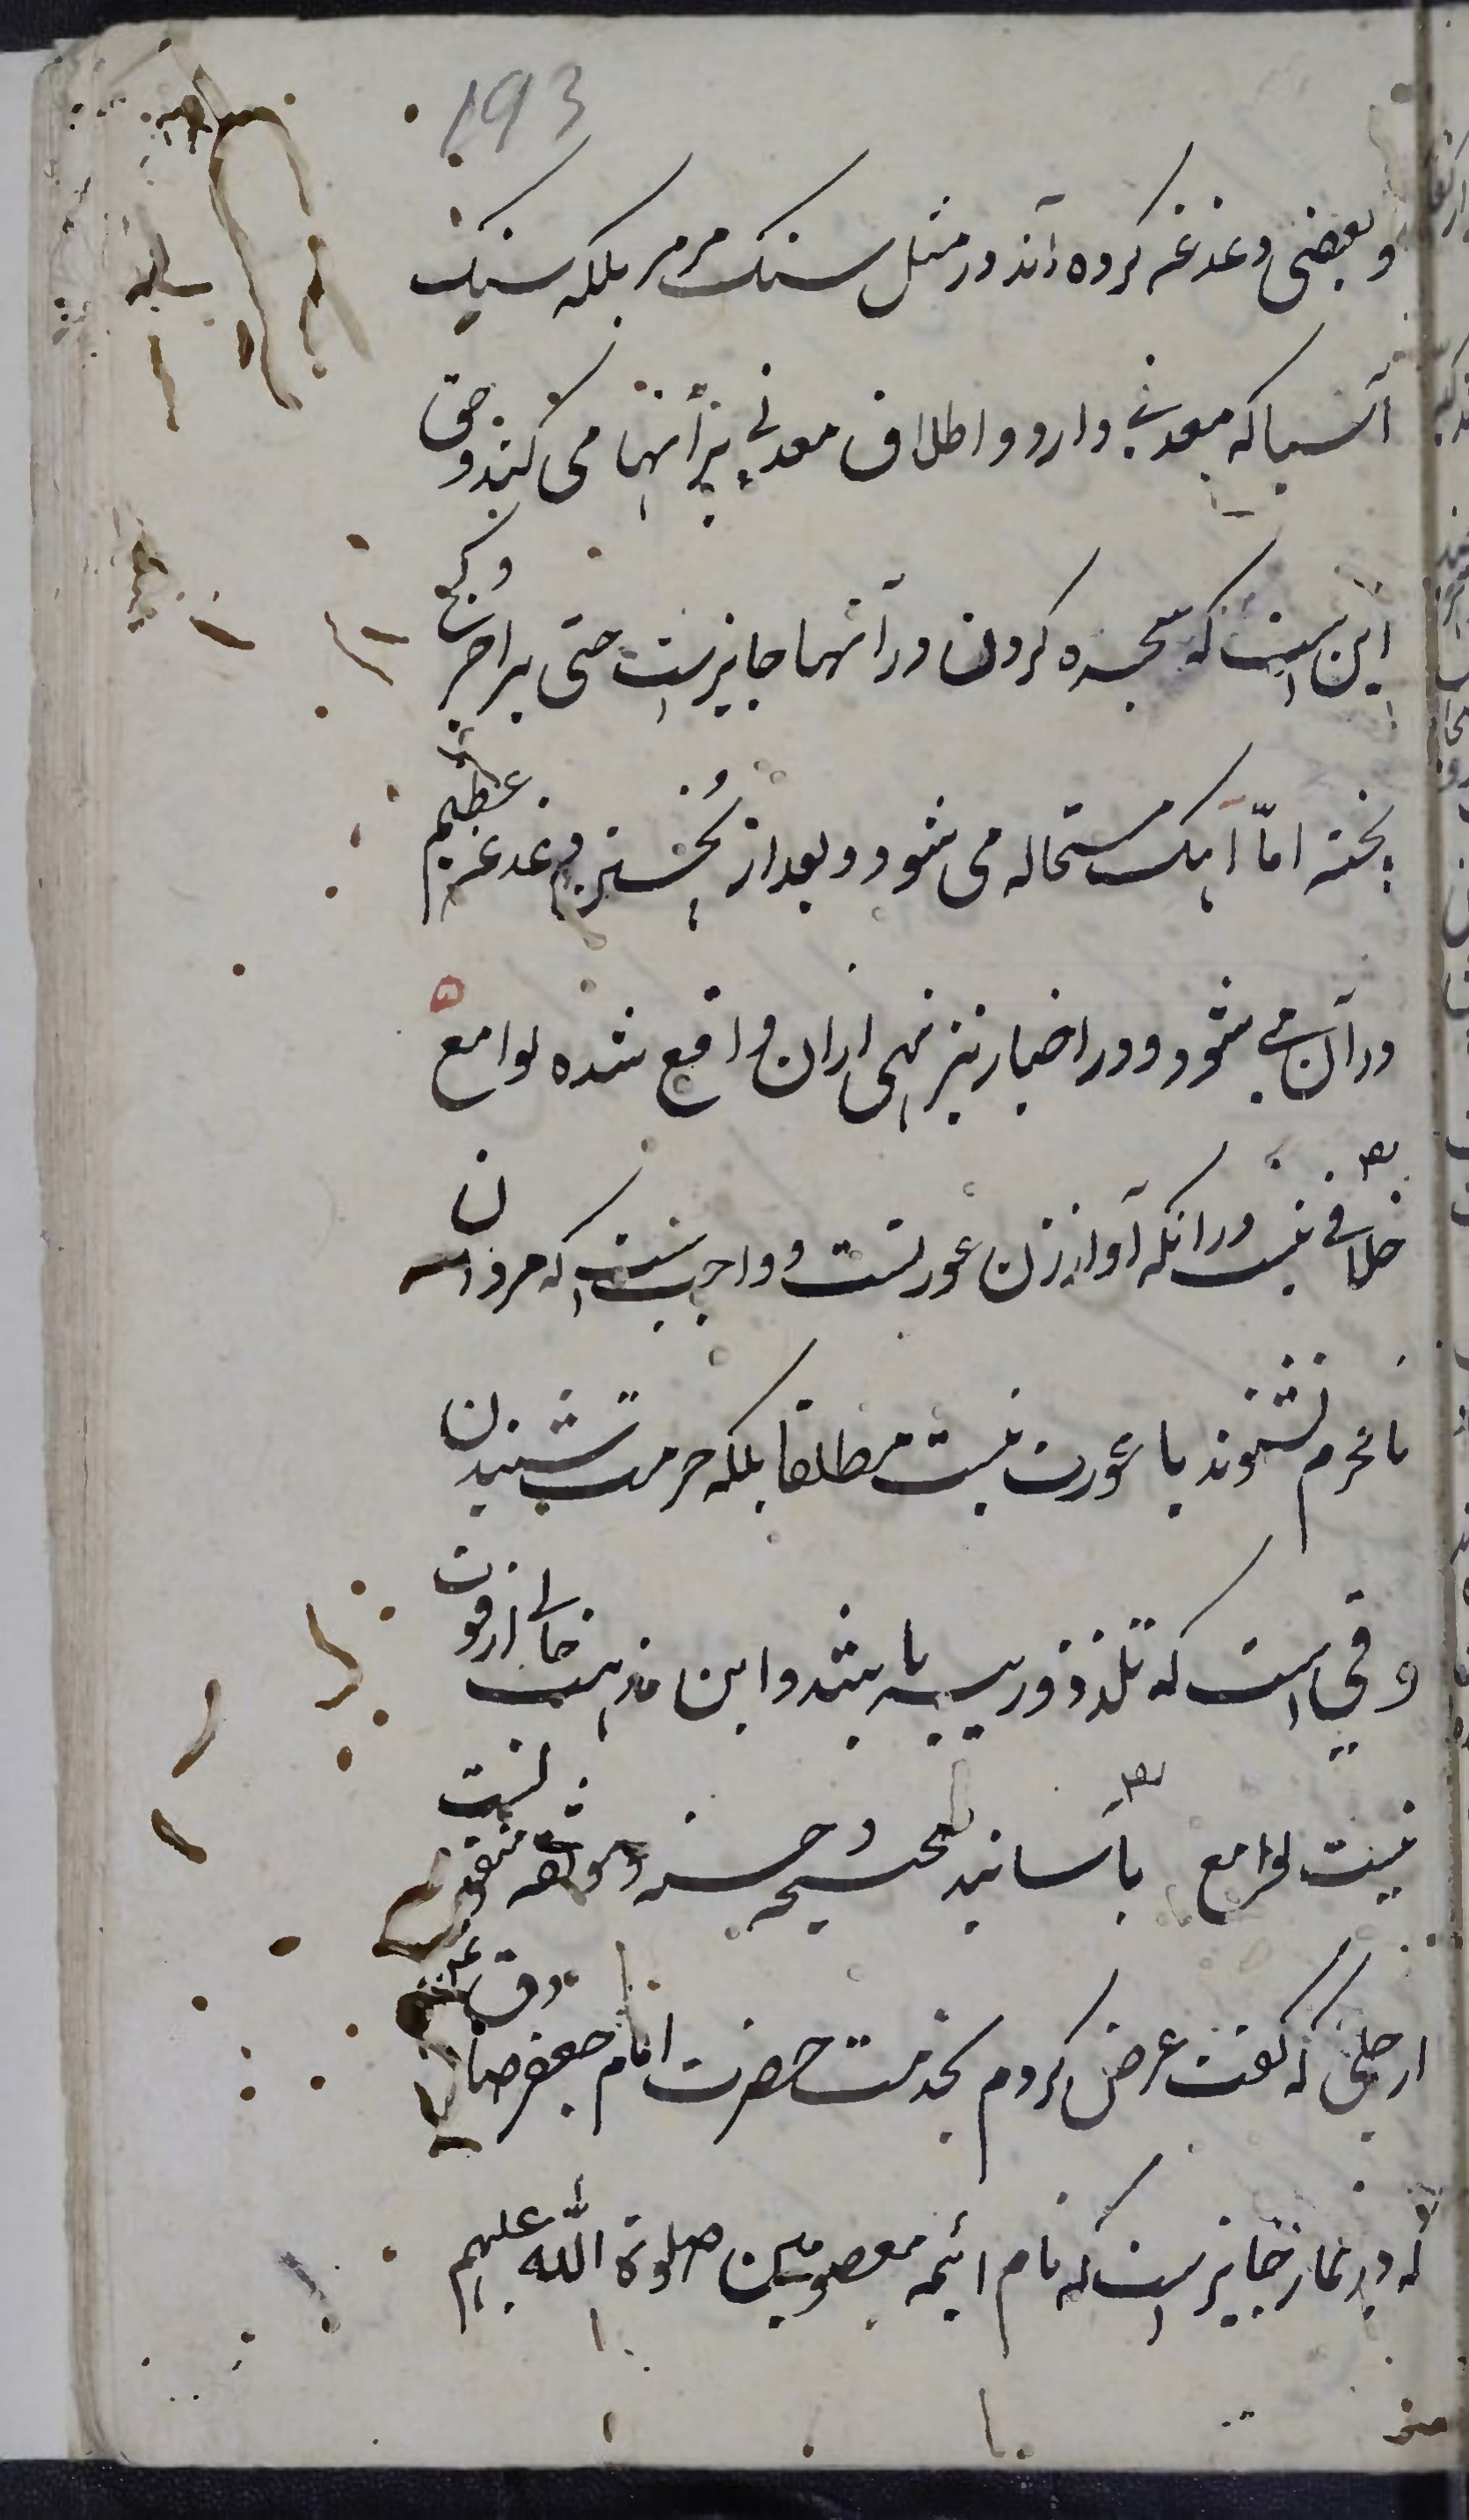 193
و بعضی دغدغه کرده‌اند در مثل سنک مرمر بلکه سنک
آسیا که معدنی دارد و اطلاق معدنی بر آنها می کنند و حق
این است که سجده کردن در آنها جایز است حتی بر آجر و کچ
پخته امّا آهک مستحاله می شود و بعد از پُختن دغدغه عظیم
در آن می شود و در اخبار نیز نهی از آن واقع شده لوامع
خلافی نیست در آنکه آواز زن عورتست و واجبست که مردان
نامحرم نشنوند یا عورت نیست مطلقا بلکه حرمت شنیدن
وقتی است که تلذذ و ریبه باشد و این مذهب خالی از قوت
نیست لوامع باسانید صحیحه و حسنه و موثقه منقولست
از حلبی که گفت عرض کردم بخدمت حضرت امام جعفر صادق
که در نماز جایز است که نام ائمه معصومین صلوة الله علیهم